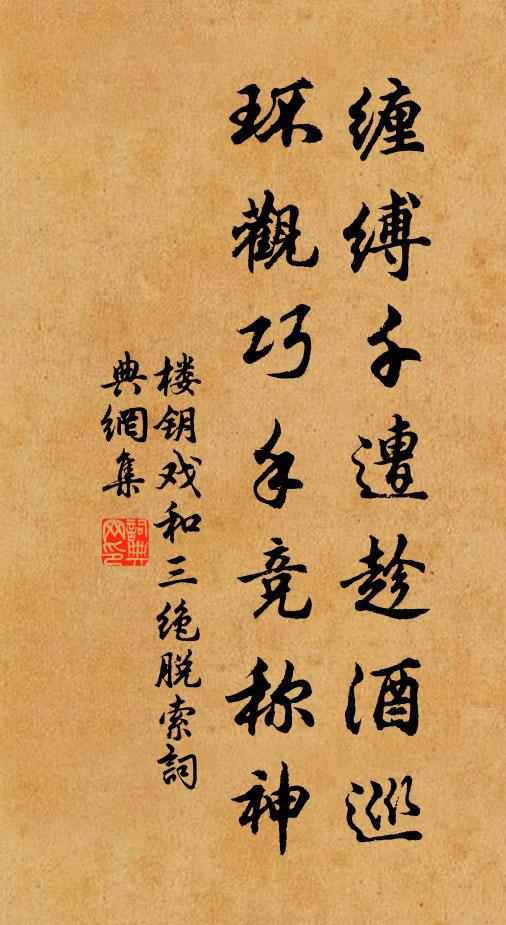 缠缚千遭趁酒巡
环觀巧手竞称神
楼钥戏和三绝脱索詞
典網集
詞典网印